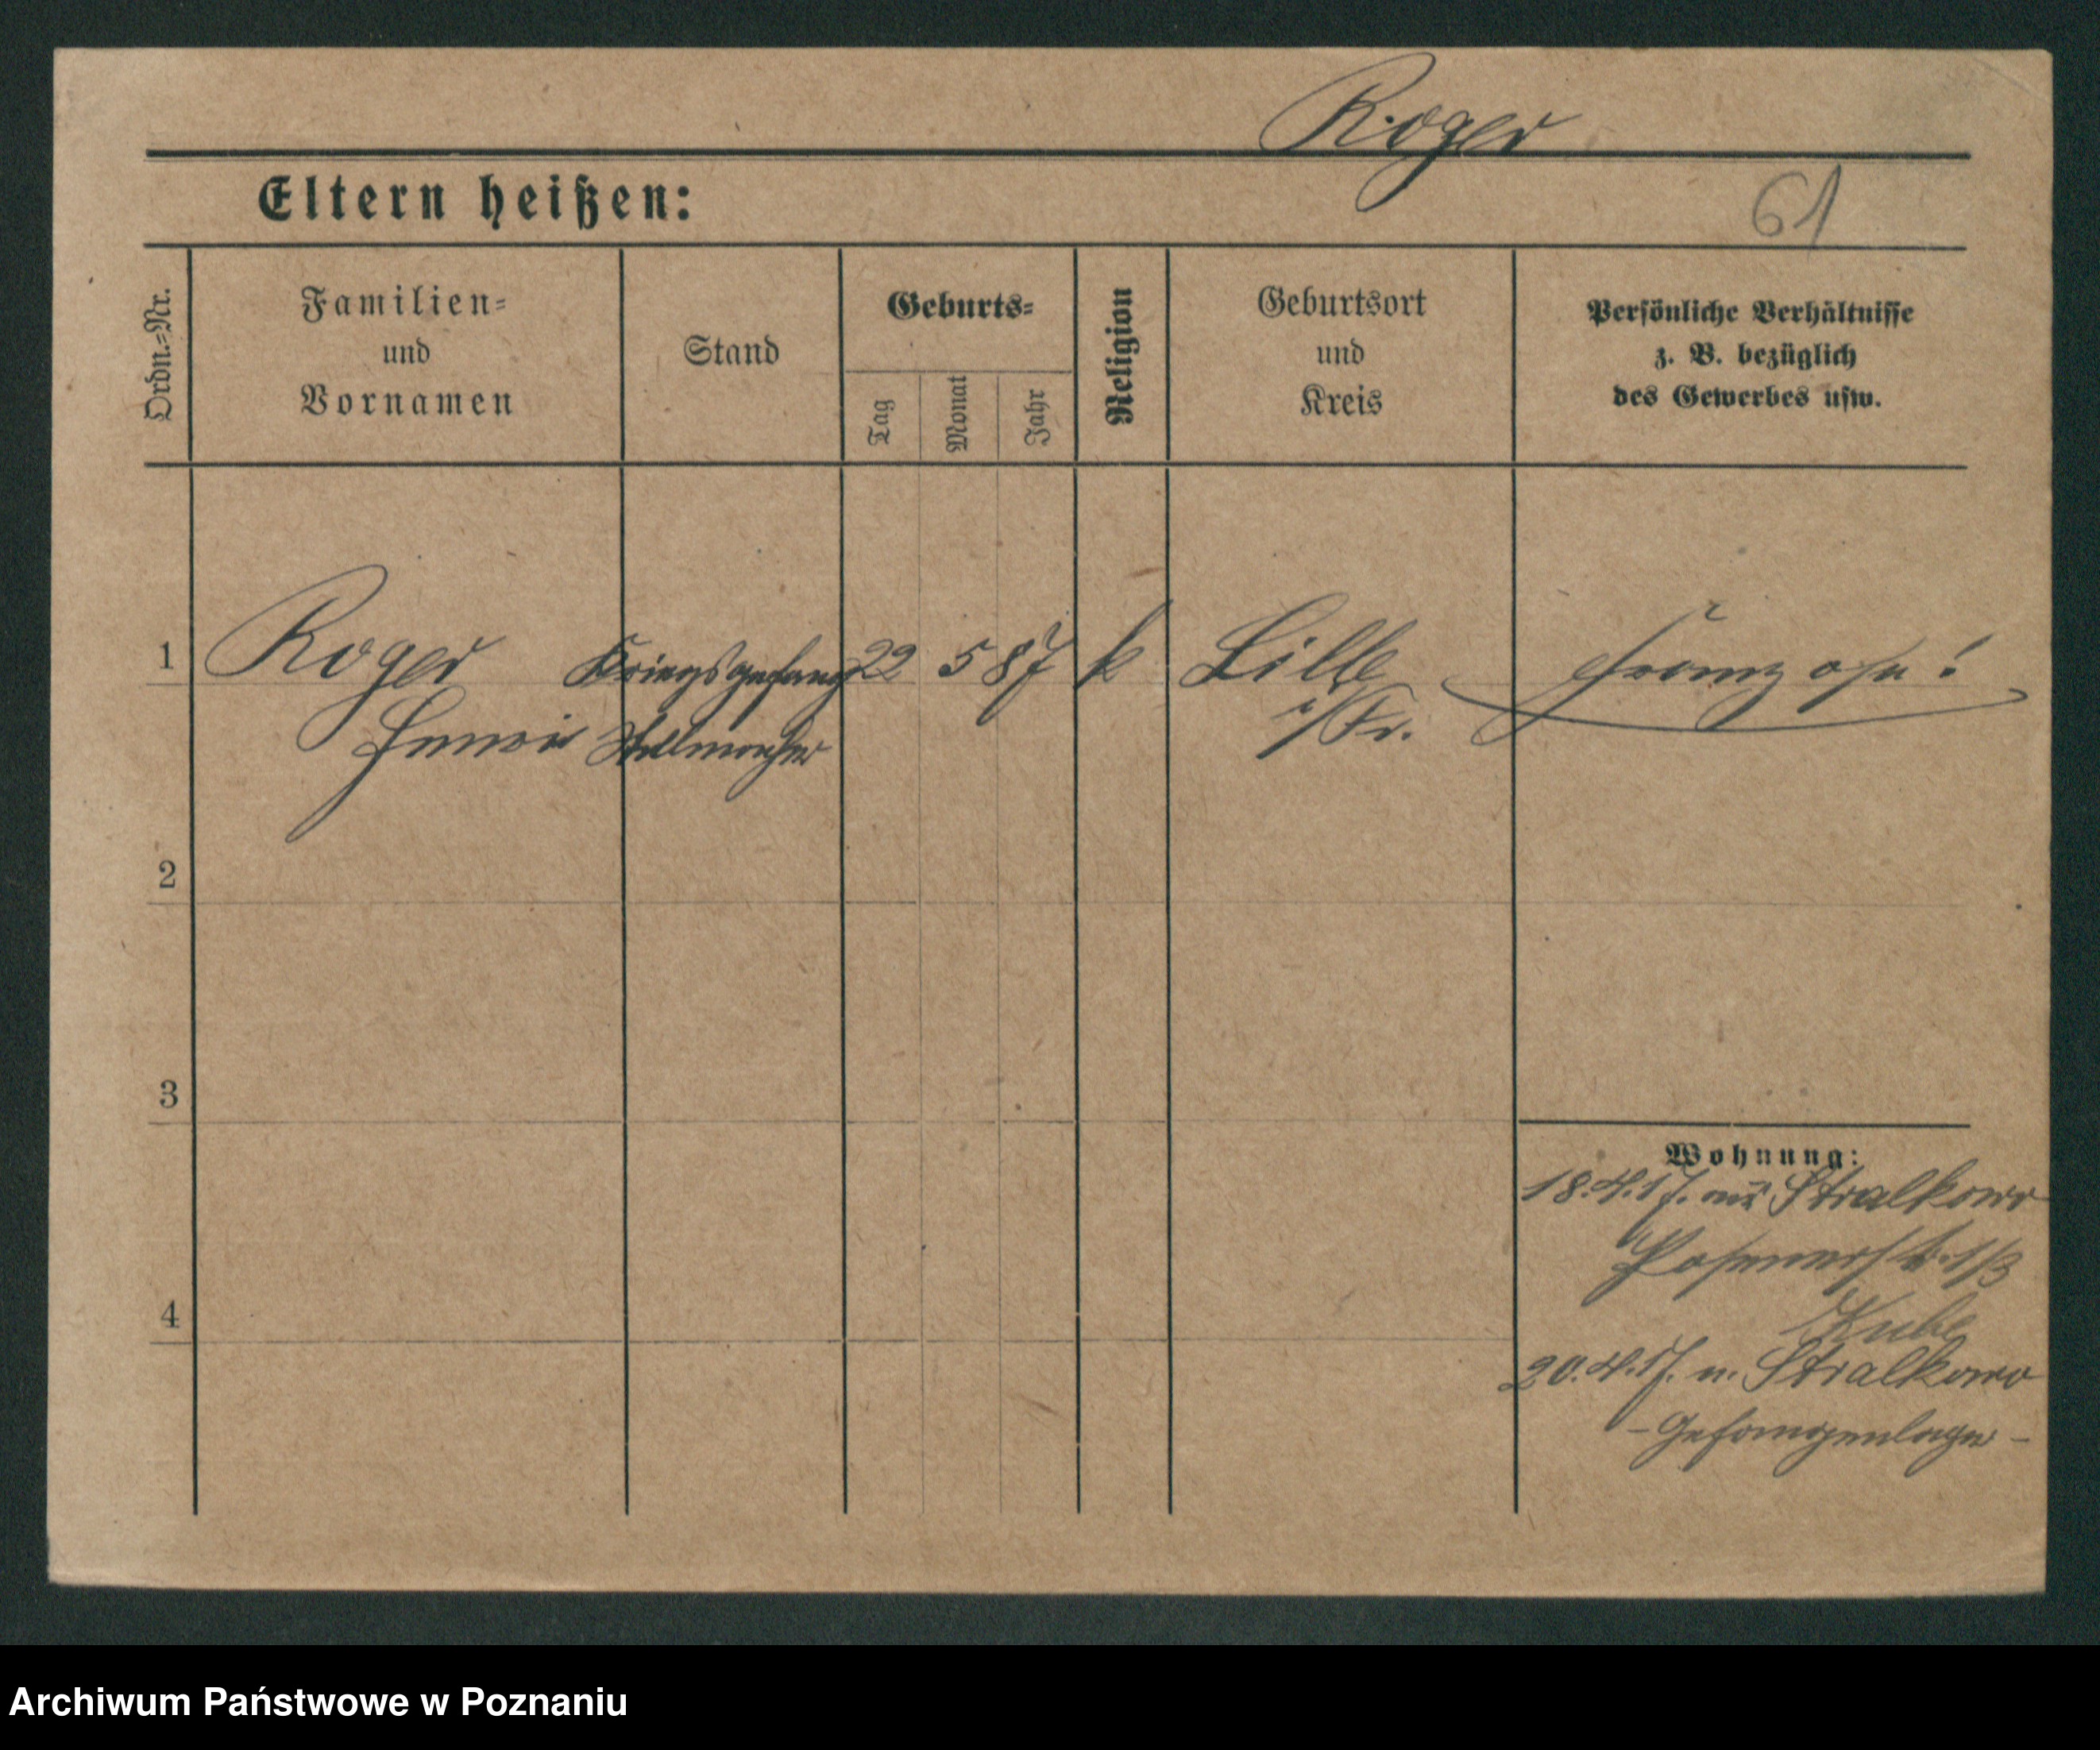 Roger
Eltern heißen:
61
Ordn.-Nr.
Familien-
und
Vornamen
Stand
Geburts-
Tag
Monat
Jahr
Religion
Geburtsort
und
Kreis
Persönliche Verhältnisse
z. B. bezüglich
des Gewerbes usw.
1 Roger Kriegsgefang 22 5 87 k Lille Franzose!
Henri Stellmacher i/Fr.
2
3
4
Wohnung:
18.4.17. aus Stralkowo
Posenerstr. 1/3
Kube
20.4.17. n. Stralkowo
- Gefangenlager -
Archiwum Państwowe w Poznaniu